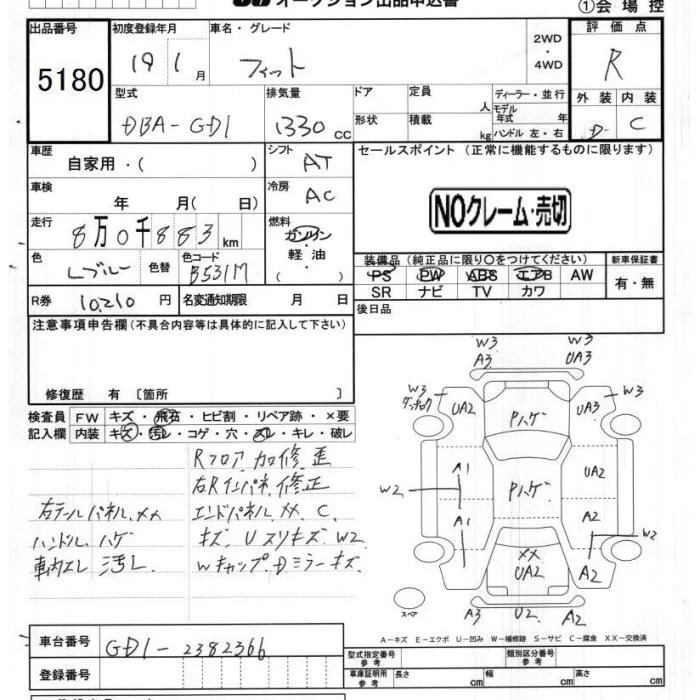 オークション出品申込書
①会場控
出品番号 初度登録年月 車名・グレード 2WD・4WD 評価点
5180 19 1月 フィット R
型式 排気量 ドア 定員 人 ディーラー・並行 外装 内装
DBA-GD1 1330cc 形状 積載 kg モデル年式 年 ハンドル 左・右 D C
車歴 自家用・( ) シフト AT セールスポイント (正常に機能するものに限ります)
車検 年 月( 日) 冷房 AC
NOクレーム・売切
走行 8万0千883km 燃料 ガソリン・軽油・( )
色 Lブルー 色替 色コード B531M
装備品(純正品に限り○をつけてください) 新車保証書
PS PW ABS エアB AW 有・無
SR ナビ TV カワ
R券 10,210円 名変通知期限 月 日 後日品
注意事項申告欄(不具合内容等は具体的に記入して下さい)
修復歴 有〔箇所 〕
検査員 FW キズ・飛石・ヒビ割・リペア跡・×要
記入欄 内装 キズ・汚レ・コゲ・穴・スレ・キレ・破レ
Rフロア 加修 歪
右Rインパネ 修正
右テールパネル ××
エンドパネル ×× C
ハンドル ハゲ
キズ U スリキズ W2
車内スレ 汚レ
Wキャップ Dミラーキズ
W3 W3
A3 UA3
W3 W3
UA2 Pハゲ UA3
A1 UA2
W2 Pハゲ
A1 A2
W2
×× UA2 A2
A3 U2 A2
スペア
A-キズ E-エクボ U-凹み W-補修跡 S-サビ C-腐食 XX-交換済
車台番号 GD1-2382366
型式指定番号 参考 類別区分番号 参考
登録番号
車庫証明用 参考 長さ cm 幅 cm 高さ cm